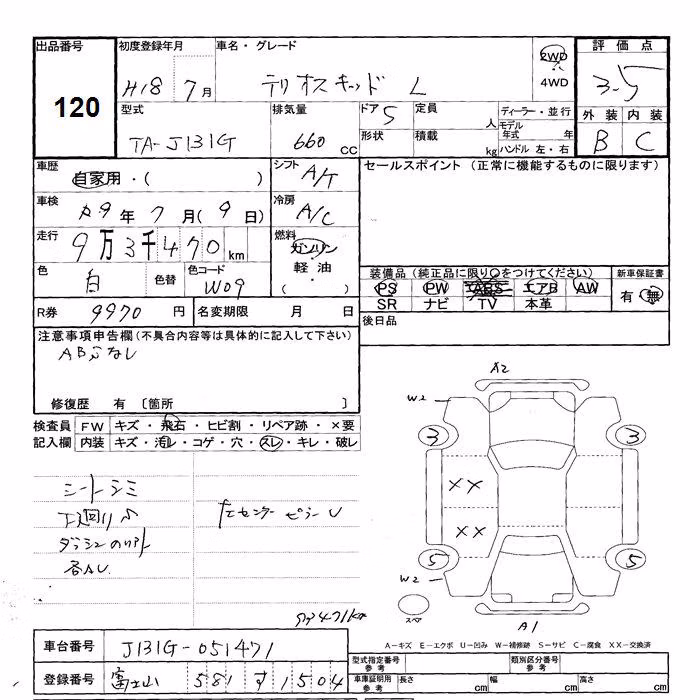 出品番号 初度登録年月 車名・グレード 2WD 評価点
120 H18 7月 テリオスキッド L 4WD 3.5
型式 排気量 ドア 5 定員 人 ディーラー・並行 外装 内装
TA-J131G 660 CC 形状 積載 kg モデル年式 年 B C
ハンドル 左・右
車歴 自家用・( ) シフト A/T セールスポイント (正常に機能するものに限ります)
車検 9年 7月(9日) 冷房 A/C
走行 9万3千470km 燃料 ガソリン
軽油・
( )
色 白 色替 色コード W09 装備品(純正品に限り○をつけてください) 新車保証書
PS PW ABS エアB AW 有・無
SR ナビ TV 本革
R券 9970円 名変期限 月 日 後日品
注意事項申告欄(不具合内容等は具体的に記入して下さい)
ABSなし
修復歴 有 〔箇所 〕
検査員 FW キズ・飛石・ヒビ割・リペア跡・×要
記入欄 内装 キズ・汚レ・コゲ・穴・スレ・キレ・破レ
A2
W2
3 3
XX
XX
5 5
W2
スペア
A1
シートシミ
左センターピラーU
各AU
A−キズ E−エクボ U−凹み W−補修跡 S−サビ C−腐食 XX−交換済
車台番号 J131G-051471
登録番号 富士山 581 す 1504
型式指定番号 参考 類別区分番号 参考
車庫証明用 参考 長さ cm 幅 cm 高さ cm